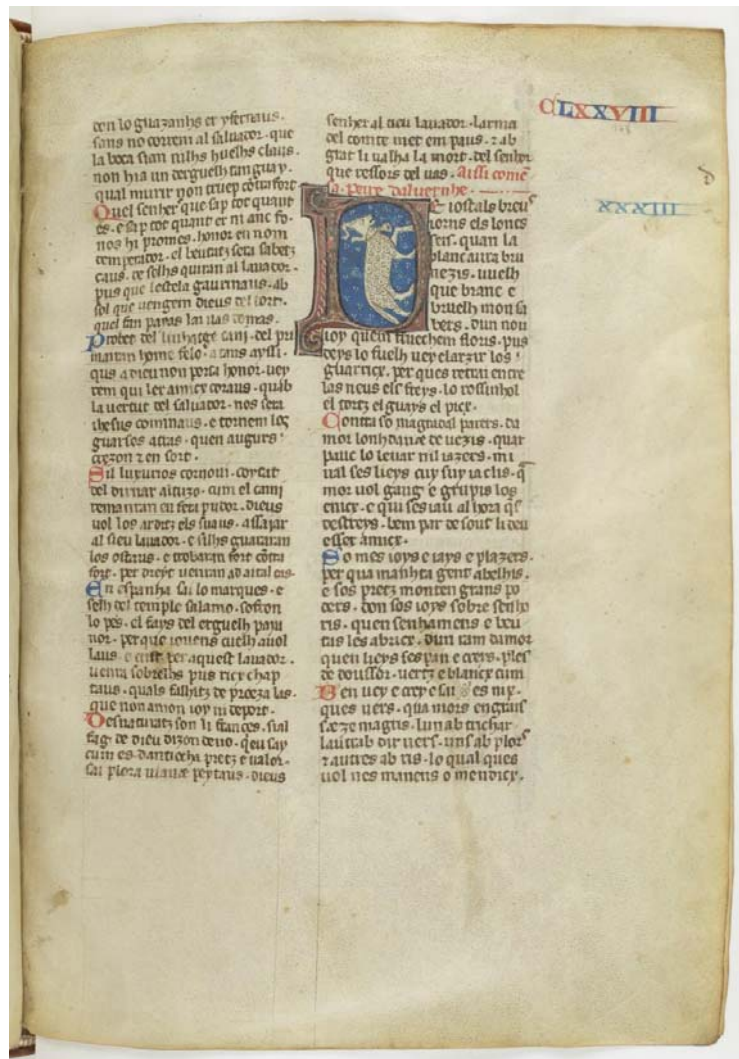 CLXXVIII
XXXIII
don lo guazanhs er yfernaus.
sans no correm al saluador. que
la boca sian nilhs huelhs claus.
non hia un derguelh tan guay.
qual murir non truep cōtrafort
Quel senher que sap tot quant
es. e sap tot quant er ni anc fo.
nos hi promes. honor en nom
demperador. el beutatz sera sabetz
caus. de selhs quiran al lauador.
pus que lestela gauzinaus. ab
sol que uengem dieus del tort.
quel fan paias lai uas domas.
Probet del linhatge cani. del pri
mairan home felo. a tans ayssi.
qus a dieu non porta honor. uey
rem qui ler amicx coraus. quab
la uertut del saluador. nos sera
ihesus cominaus. e tornem los
guarsos atras. quen augurs
crezon z en sort.
Sil luxurios cornoui. cochat
del dirnar
reman tan en fera pudor. dieus
uol los arditz els suaus. assajar
al sieu lauador. e silhs guaitaran
los ostaus. e trobaran fort cōtra
fort. per dreyt
En espanha sai lo marques. e
selh del temple salamo. sofron
lo pes. el fays del erguelh paya
nor. per que iouens cuelh auol
laus. e crist per aquest lauador.
uerra sobrelhs pus ricx chap
taus. quals falhitz de proeza las.
que non amon ioy ni deport.
Desnaturatz son li frances. sial
fag de dieu dizon de no. qeu say
cum es dantiocha pretz e ualor.
sai plora uiana e peytaus. dieus
senher al tieu lauador. larma
del comte met em paus. z ab
guit li ualha la mort. del senhor
que ressors del uas. Aissi comē
sa. Peire daluernhe.
Deiostals breus
iorns els loncs
sers. quan la
blanc aura bru
nezis. uuelh
que branc e
bruelh mon sa
bers. dun nou
ioy quem fruechem floris. pus
deys lo fuelh uey clarzir los
guarricx. per ques retrai entre
las neus els freys. lo rossinhol
el tortz el guays el picx.
Contra so magradal parers. da
mor lonhdana e de uezis. quar
pauc lo leuar nil iazers. mi
ual ses lieys cuy suy iaclis. q̄
mor uol gaug e grupis los
enicx. e qui ses iau al hora qs
destreys. bem par de sout li deu
esser amicx.
So mes ioys e iays e plazers.
per qua manhta gent abelhis.
e sos pretz monten grans po
ders. don sos ioys sobre senho
ris. quen senhamens e beu
tas les abricx. dun ram damor
quen lieys ses pan e creys. ples
de doussor. uertz e blancx cum
Ben uey e crey e sai
ques uers. qua mors engrais
lun ab trichar
lautrab dir uers. uns ab plors
z autres ab ris. lo qual ques
uol nes manens o mendicx.